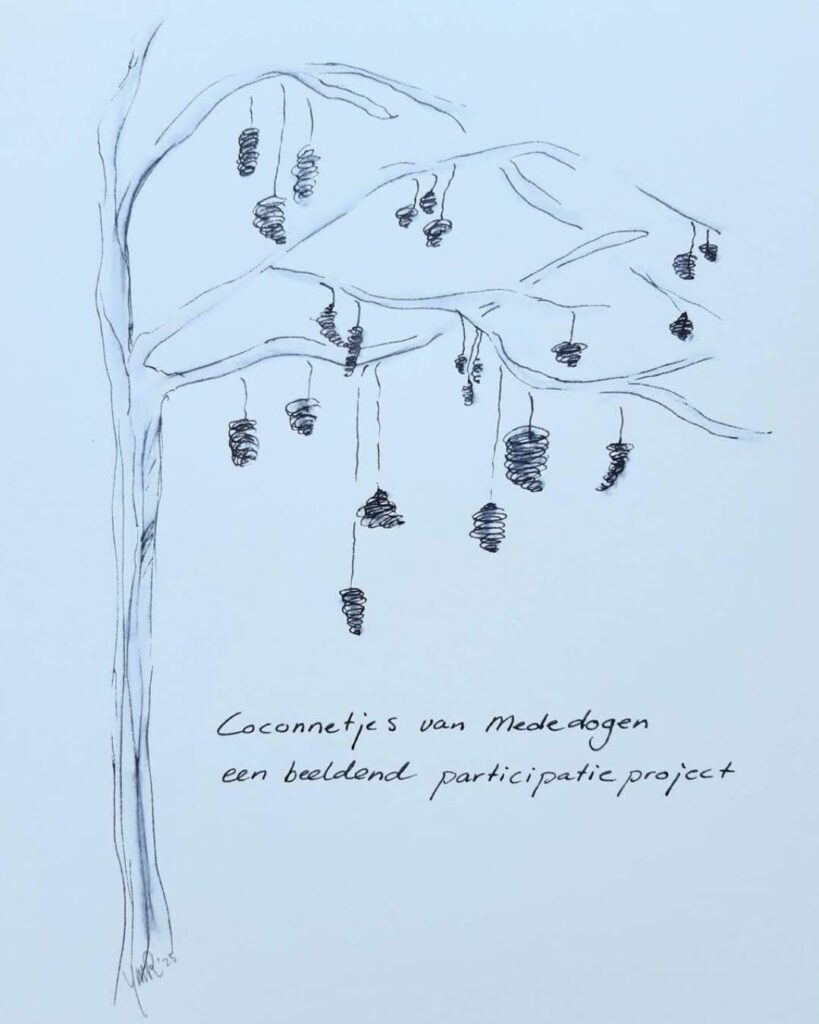 Coconnetjes van Mededogen
een beeldend participatie project
YMR '25